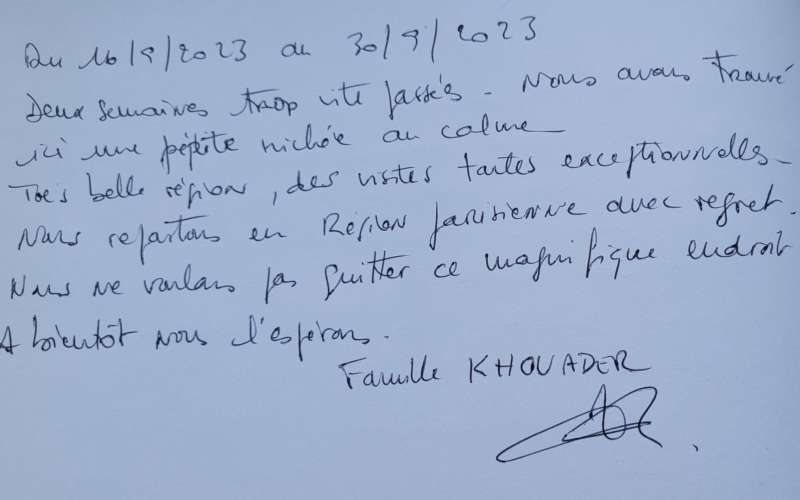 Du 16/9/2023 au 30/9/2023
Deux semaines trop vite passés - Nous avons trouvé
ici une pépite nichée au calme
Très belle région, des visites toutes exceptionnelles -
Nous repartons en Région parisienne avec regret.
Nous ne voulons pas quitter ce magnifique endroit
A bientôt nous l'espérons.
Famille KHOUADER